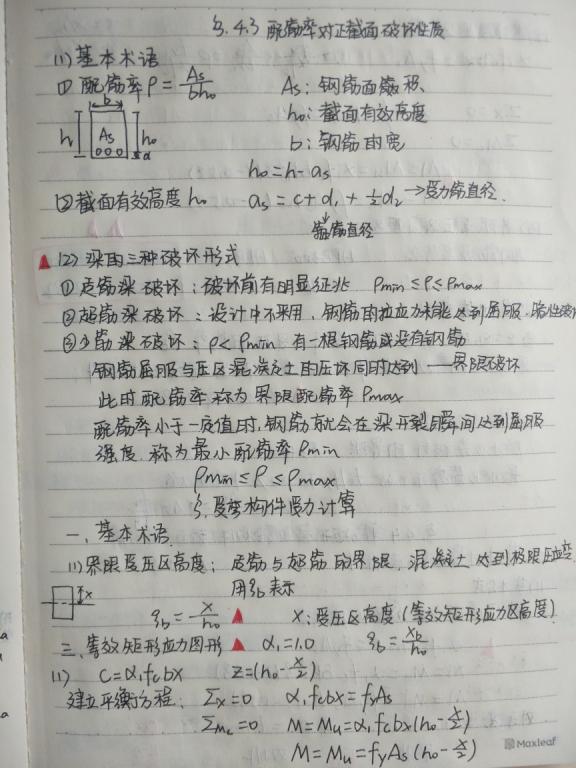 §.4.3 配筋率对正截面破坏性质
(1)基本术语
① 配筋率ρ=As/bh₀ As:钢筋面积.
b h₀:截面有效高度
h As h₀ b:钢筋的宽
a h₀=h-as
②截面有效高度h₀ as=c+d₁+½d₂→受力筋直径.
箍筋直径
(2)梁的三种破坏形式
①适筋梁破坏:破坏前有明显征兆 ρmin≤ρ≤ρmax
②超筋梁破坏:设计中不采用,钢筋的拉应力未能达到屈服,脆性破
③少筋梁破坏:ρ<ρmin 有一根钢筋或没有钢筋
钢筋屈服与压区混凝土的压坏同时达到——界限破坏
此时配筋率称为界限配筋率ρmax
配筋率小于一定值时,钢筋就会在梁开裂瞬间达到屈服
强度.称为最小配筋率ρmin
ρmin≤ρ≤ρmax
§.受弯构件受力计算
一.基本术语.
(1)界限受压区高度:适筋与超筋的界限,混凝土达到极限压应变
x 用ξb表示
ξb=x/h₀ x:受压区高度(等效矩形应力区高度)
三.等效矩形应力图形 α₁=1.0 ξb=xb/h₀
(1) C=α₁fcbx z=(h₀-x/2)
建立平衡方程: Σx=0 α₁fcbx=fyAs
Σmc=0 M=Mu=α₁fcbx(h₀-x/2)
M=Mu=fyAs(h₀-x/2)
Maxleaf